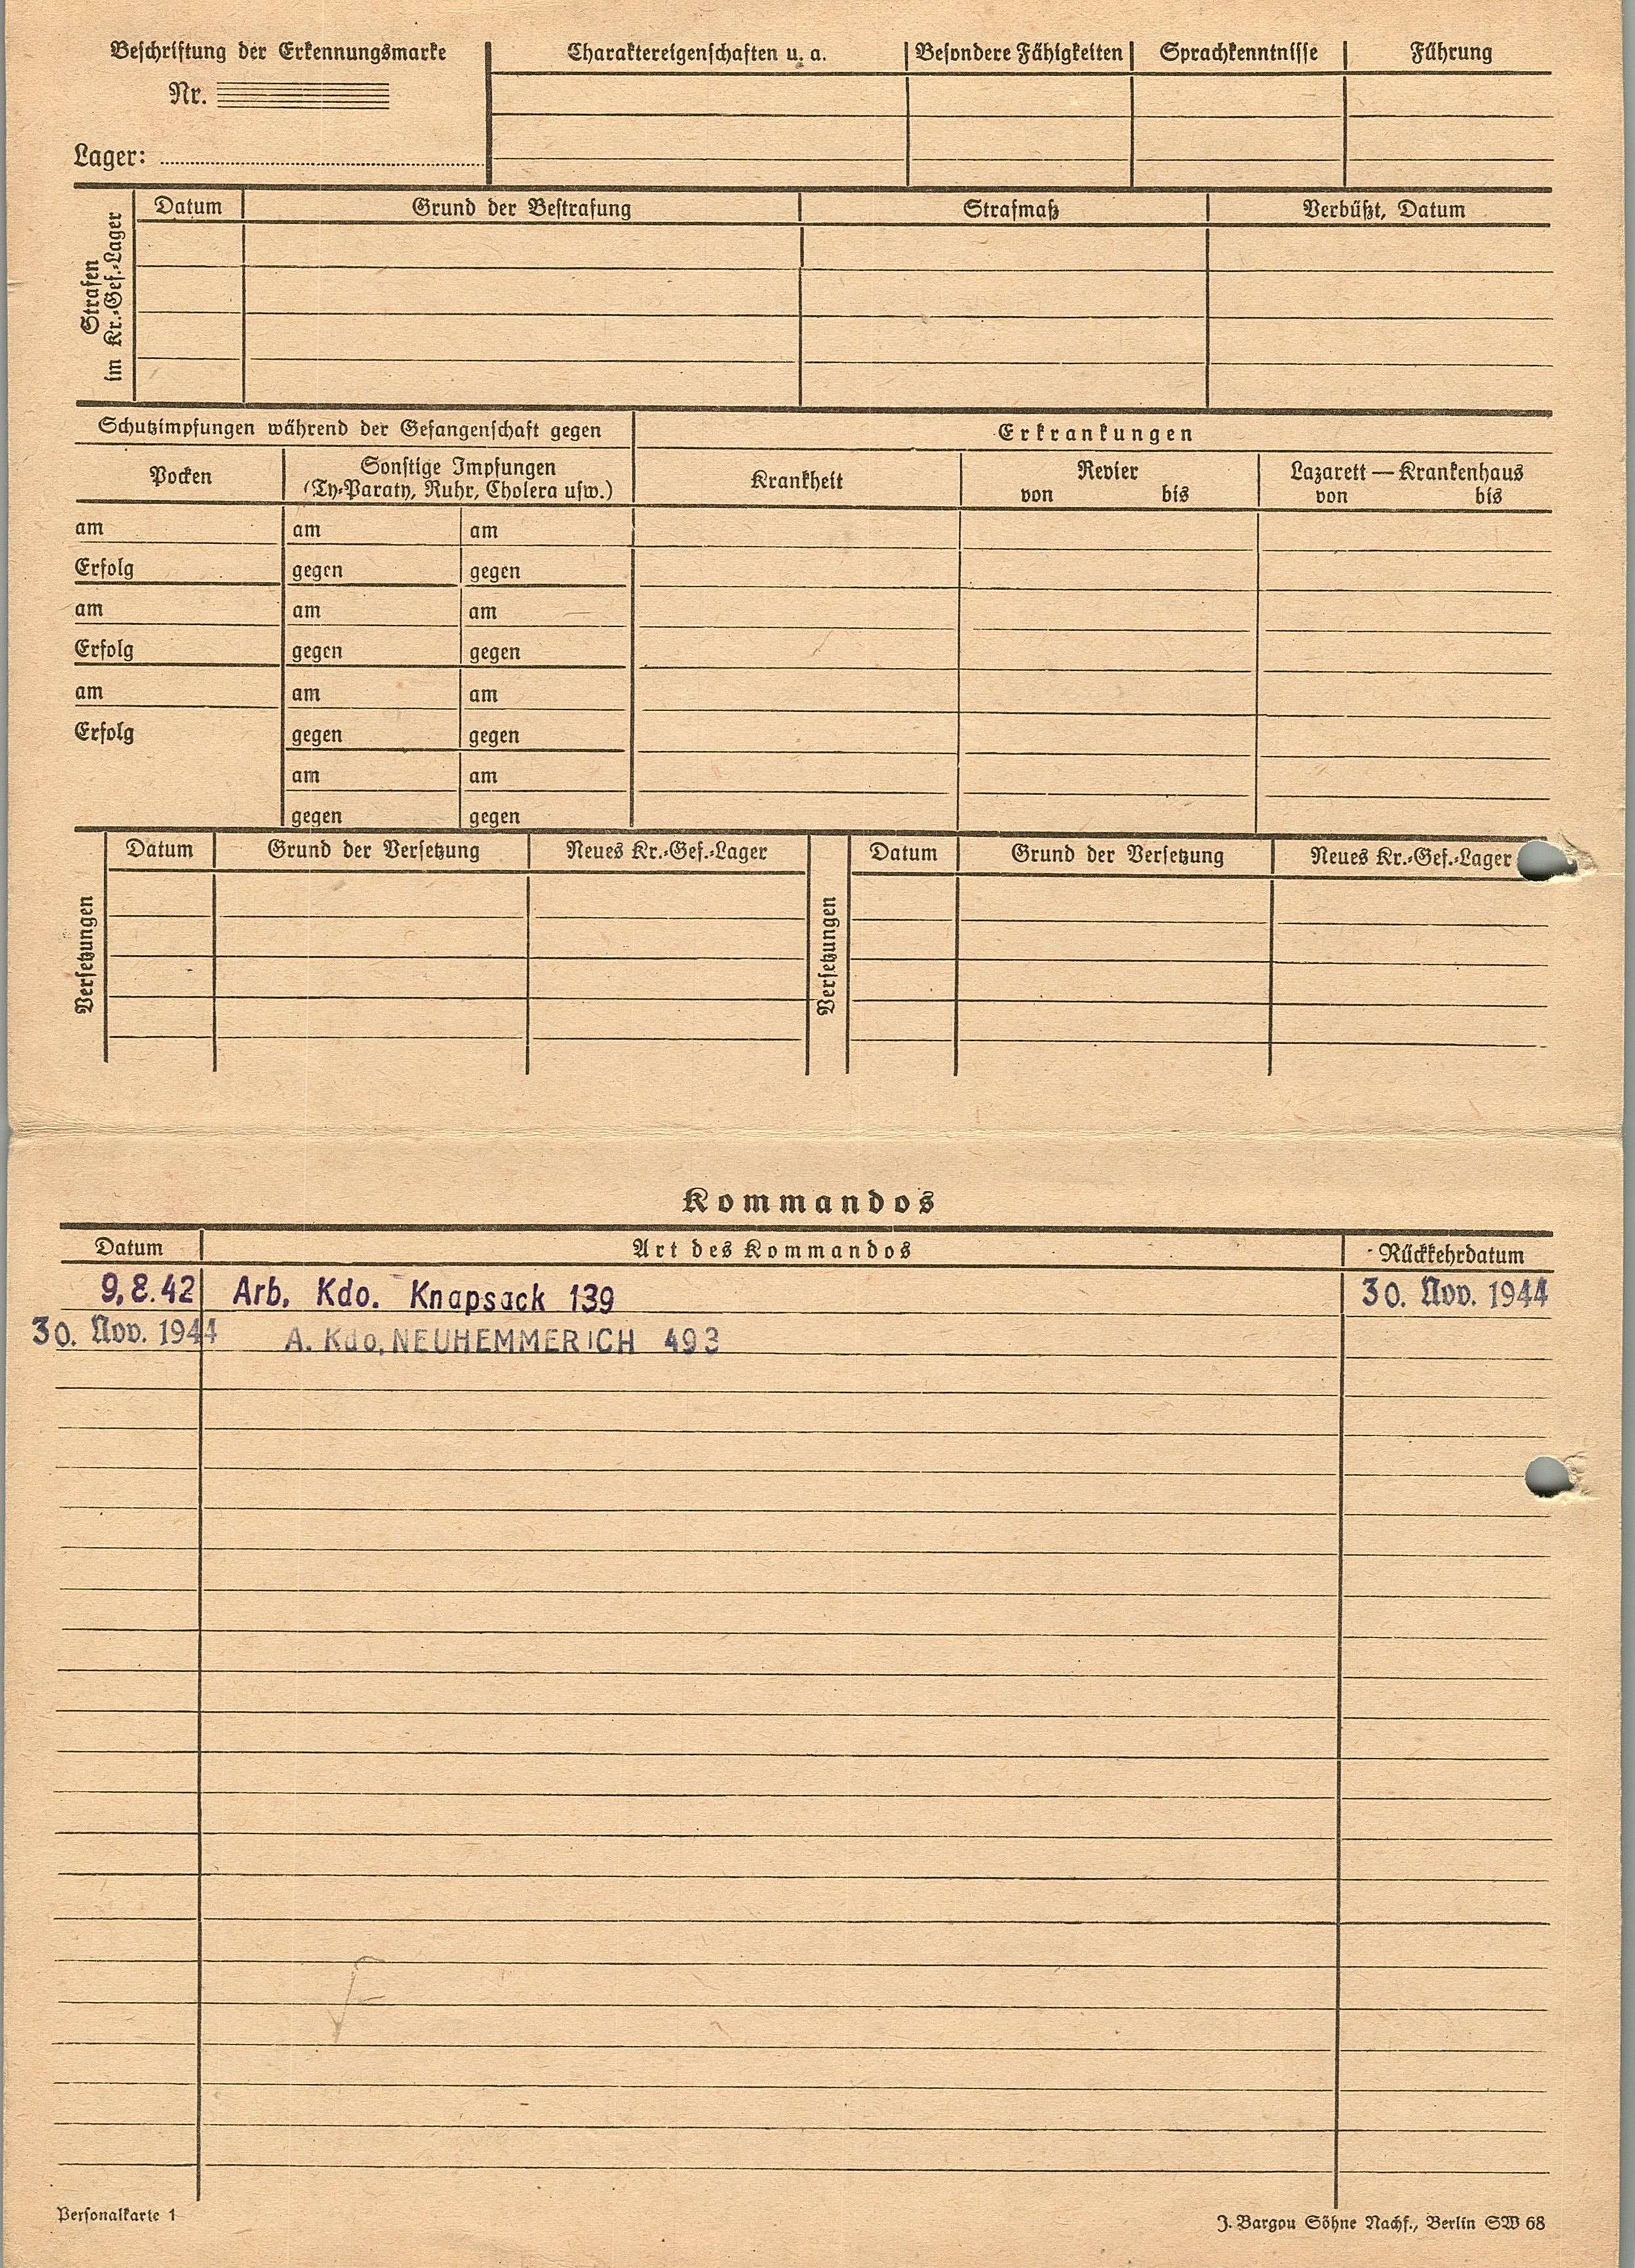 Beschriftung der Erkennungsmarke
Nr.
Lager:
Charaktereigenschaften u. a.
Besondere Fähigkeiten
Sprachkenntnisse
Führung
Strafen
im Kr.-Gef.-Lager
Datum
Grund der Bestrafung
Strafmaß
Verbüßt, Datum
Schutzimpfungen während der Gefangenschaft gegen
Erkrankungen
Pocken
Sonstige Impfungen
(Ty-Paraty, Ruhr, Cholera usw.)
Krankheit
Revier
von bis
Lazarett — Krankenhaus
von bis
am am am
Erfolg gegen gegen
am am am
Erfolg gegen gegen
am am am
Erfolg gegen gegen
am am
gegen gegen
Versetzungen
Datum Grund der Versetzung Neues Kr.-Gef.-Lager
Versetzungen
Datum Grund der Versetzung Neues Kr.-Gef.-Lager
Kommandos
Datum Art des Kommandos Rückkehrdatum
9.8.42 Arb. Kdo. Knapsack 139 30. Nov. 1944
30. Nov. 1944 A. Kdo. NEUHEMMERICH 493
Personalkarte 1
J. Bargou Söhne Nachf., Berlin SW 68